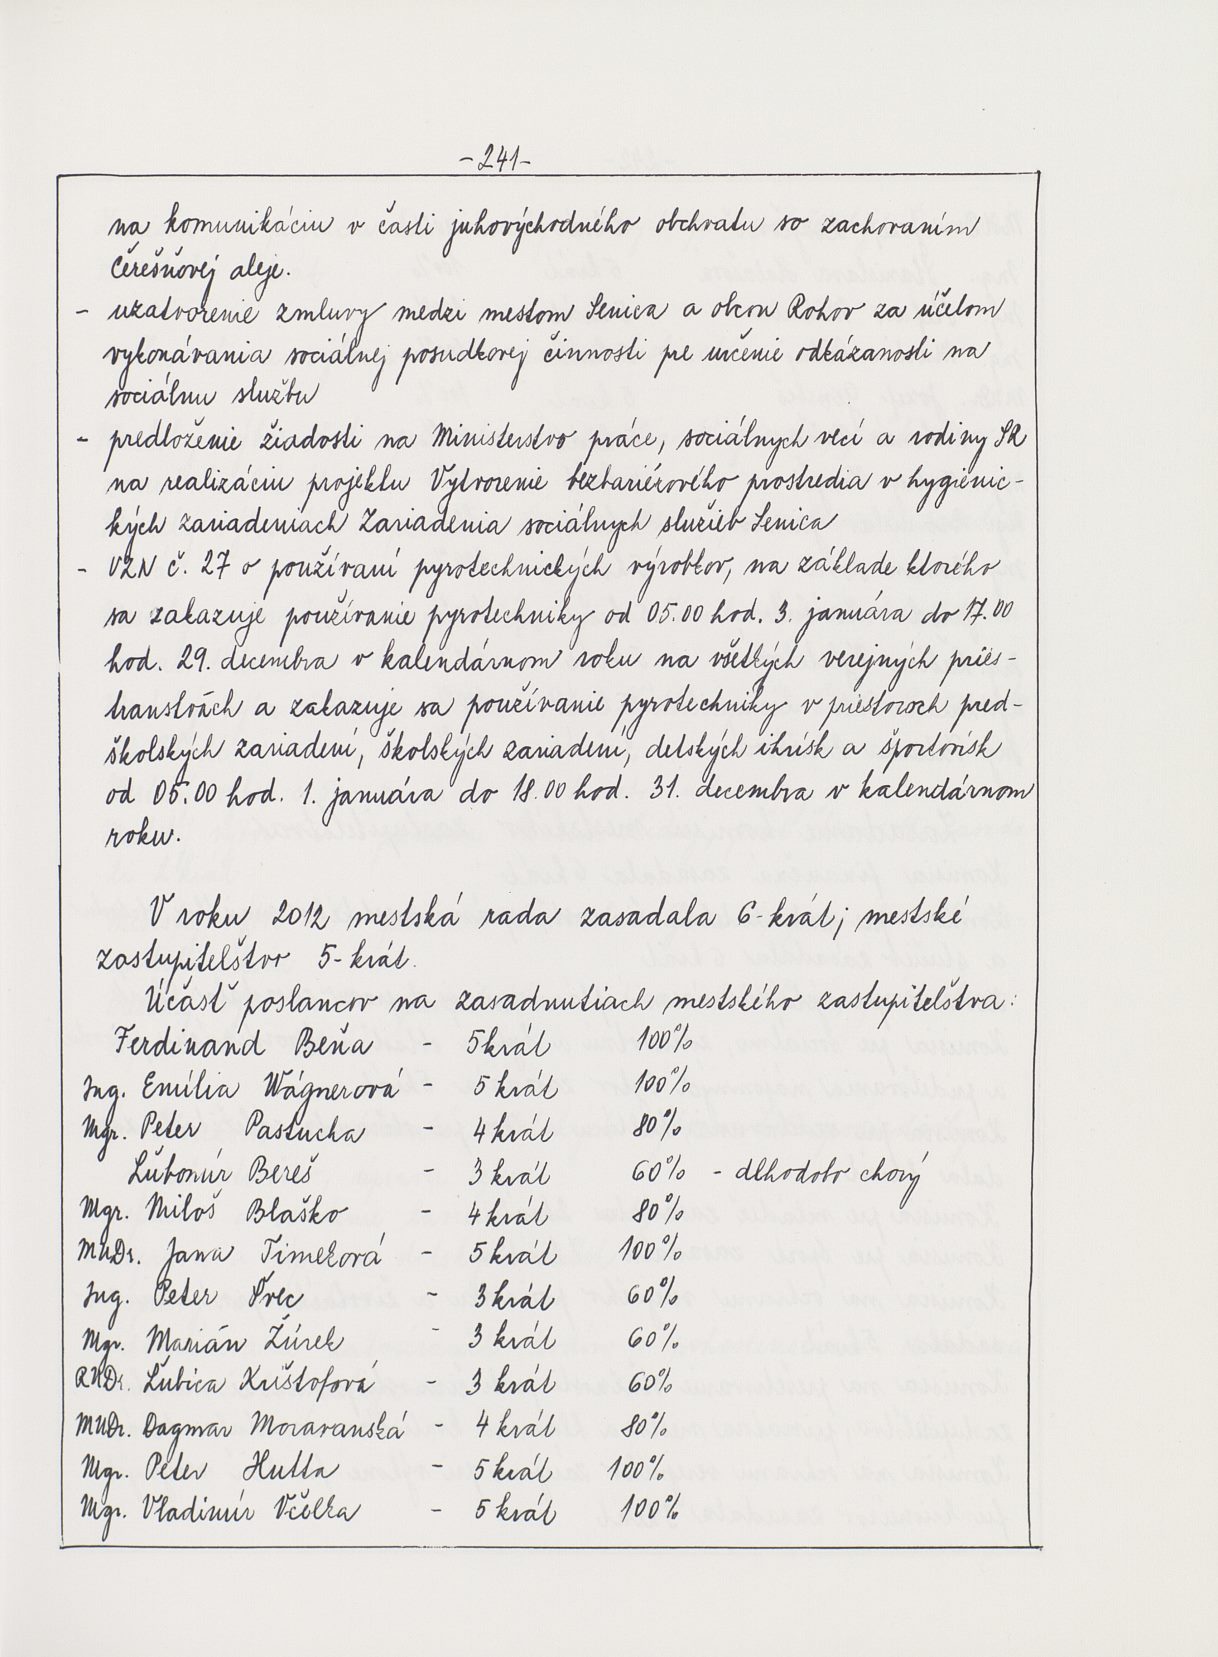 -241-
na komunikáciu v časti juhovýchodného obchvatu so zachovaním
Čerešňovej aleje.
- uzatvorenie zmluvy medzi mestom Senica a obcou Rohov za účelom
vykonávania sociálnej posudkovej činnosti pre určenie odkázanosti na
sociálnu službu
- predloženie žiadosti na Ministerstvo práce, sociálnych vecí a rodiny SR
na realizáciu projektu Vytvorenie bezbariérového prostredia v hygienic-
kých zariadeniach Zariadenia sociálnych služieb Senica
- VZN č. 27 o používaní pyrotechnických výrobkov, na základe ktorého
sa zakazuje používanie pyrotechniky od 05.00 hod. 3. januára do 17.00
hod. 29. decembra v kalendárnom roku na všetkých verejných pries-
transtvách a zakazuje sa používanie pyrotechniky v priestoroch pred-
školských zariadení, školských zariadení, detských ihrísk a športovísk
od 05.00 hod. 1. januára do 18.00 hod. 31. decembra v kalendárnom
roku.
V roku 2012 mestská rada zasadala 6-krát; mestské
zastupiteľstvo 5-krát.
Účasť poslancov na zasadnutiach mestského zastupiteľstva:
Ferdinand Beňa - 5 krát 100%
Ing. Emília Wágnerová - 5 krát 100%
Mgr. Peter Pastucha - 4 krát 80%
Ľubomír Bereš - 3 krát 60% - dlhodobo chorý
Mgr. Miloš Blaško - 4 krát 80%
MUDr. Jana Timeková - 5 krát 100%
Ing. Peter Švec - 3 krát 60%
Mgr. Marián Žúrek - 3 krát 60%
RNDr. Ľubica Krištofová - 3 krát 60%
MUDr. Dagmar Moravanská - 4 krát 80%
Mgr. Peter Hutta - 5 krát 100%
Mgr. Vladimír Včelka - 5 krát 100%